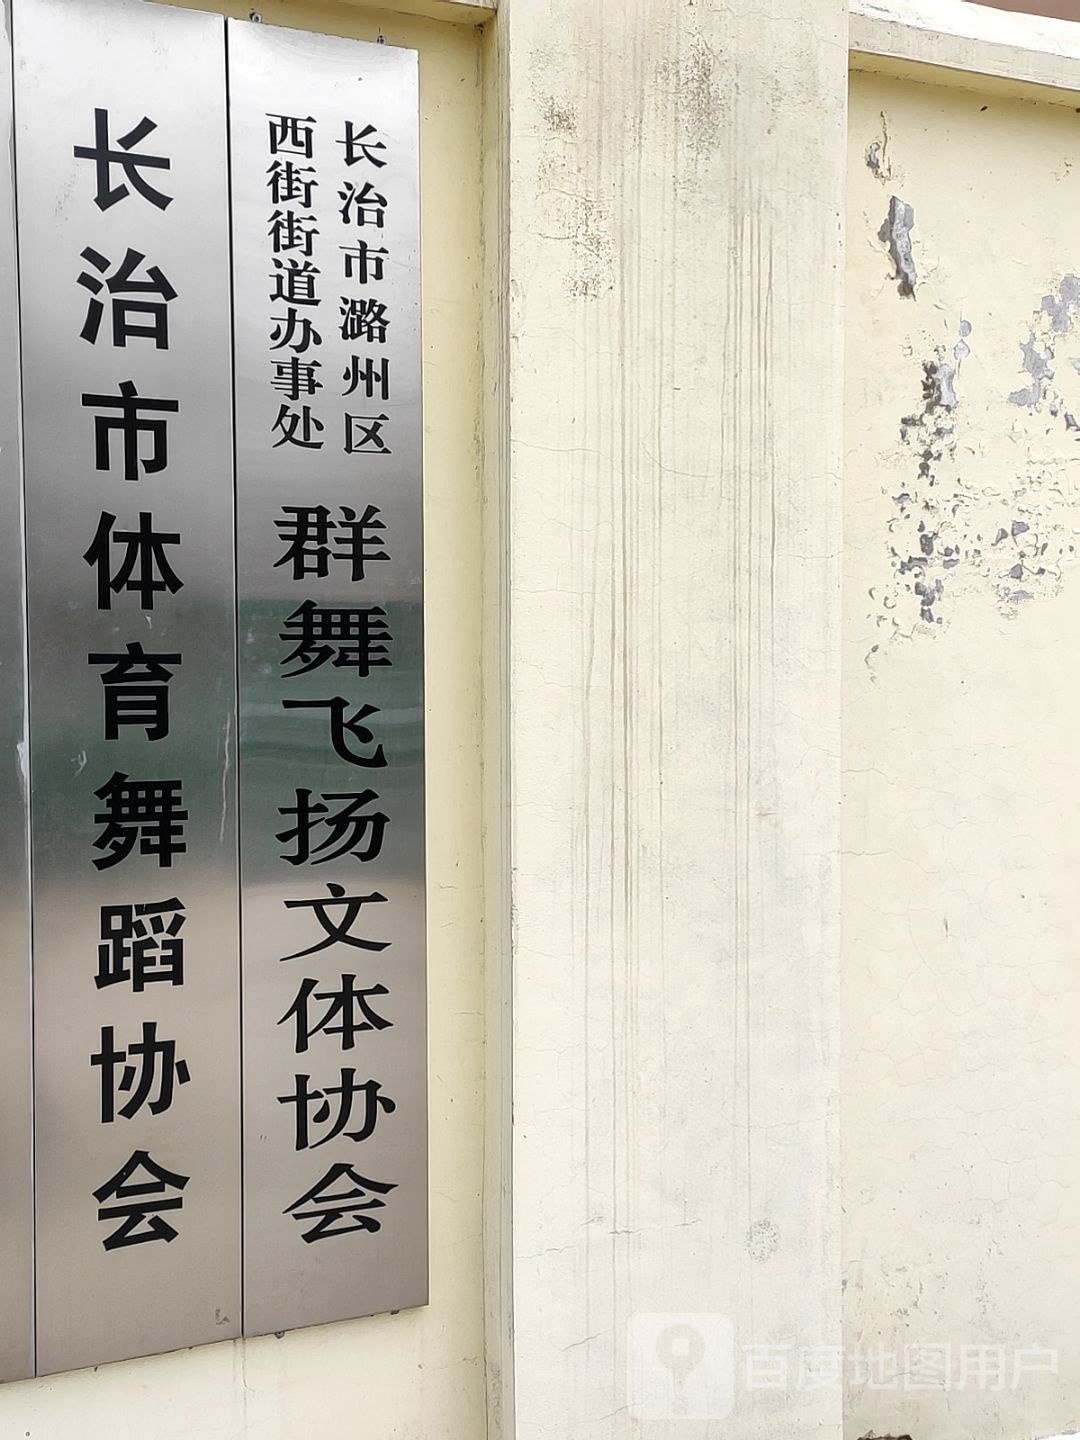 长治市体育舞蹈协会
长治市潞州区
西街街道办事处
群舞飞扬文体协会
百度地图用户